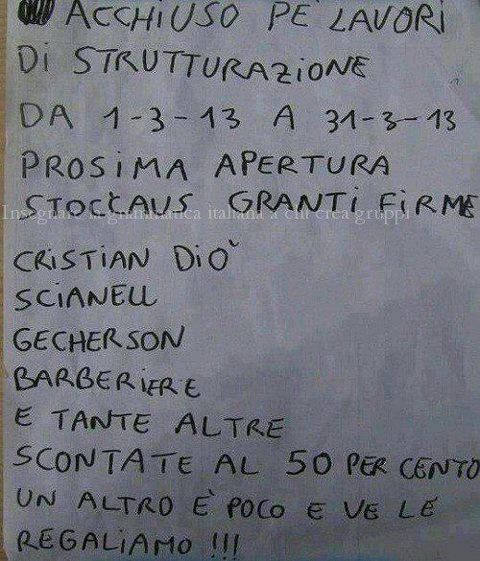 ACCHIUSO PE LAVORI
DI STRUTTURAZIONE
DA 1-3-13 A 31-3-13
PROSIMA APERTURA
STOCCAUS GRANTI FIRME
Insegnare la grammatica italiana a chi crea gruppi
CRISTIAN DIO'
SCIANELL
GECHERSON
BARBERIERE
E TANTE ALTRE
SCONTATE AL 50 PER CENTO
UN ALTRO È POCO E VE LE
REGALIAMO !!!